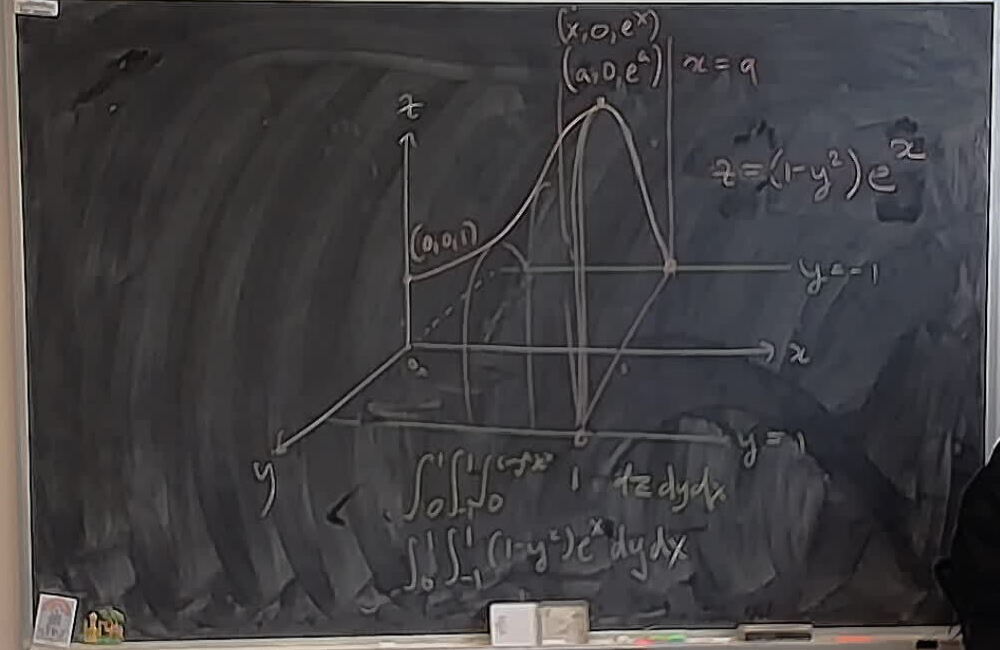 (x, 0, eˣ)
(a, 0, eᵃ)
x = a
z
z = (1-y²)eˣ
(0, 0, 1)
y = -1
x
y
y = 1
∫₀¹∫₋₁¹∫₀ 1 dz dy dx
∫₀¹∫₋₁¹ (1-y²)eˣ dy dx